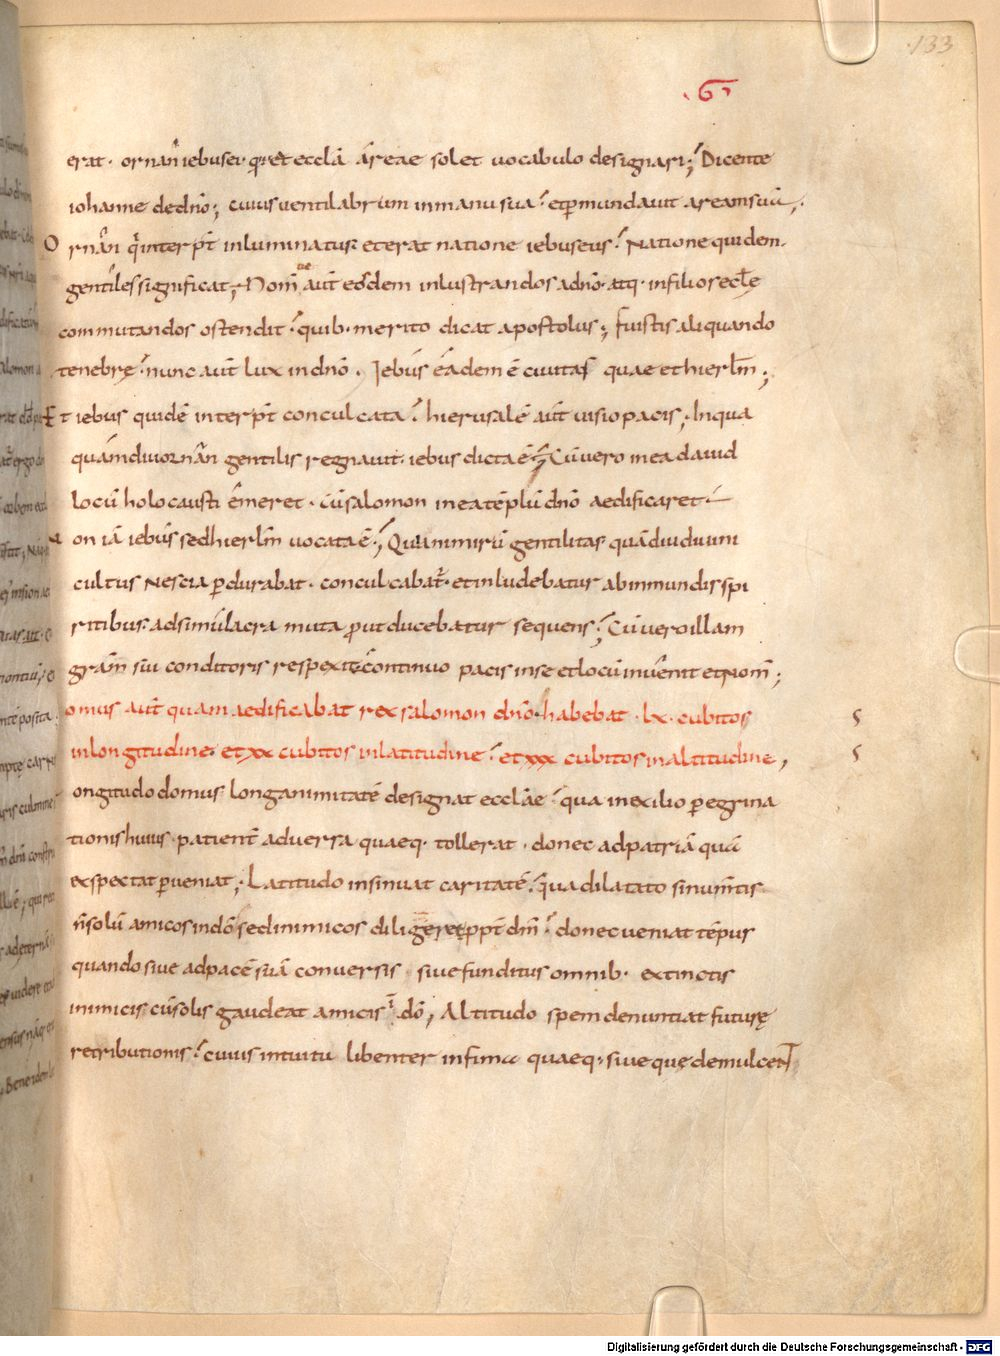 133
·6·
erat· ornan̄ iebusei· q̄r et eccl̄a areae solet uocabulo designari; Dicente
iohanne de dn̄o; cuius uentilabrum in manu sua? et ꝑmundauit aream suā;
Ornan q̄ interp̄t inluminatus· et erat natione iebuseus? Natione quidem·
gentiles significat; Nom̄ aut̄ eosdem inlustrandos a dn̄o· atq· in filios eccl̄ę
commutandos ostendit? quib· merito dicat apostolus; Fuistis aliquando
tenebrę? nunc aut̄ lux in dn̄o· Iebus eadem ē ciuitas quae et hierl̄m;
Et iebus quidē interp̄t conculcata? hierusalē aut̄ uisio pacis; Inqua
quamdiu ornan gentilis regnauit· iebus dicta ē; Cū uero in ea dauid
locū holocausti emeret· cū salomon in ea tēplū dn̄o aedificaret
on iā iebus sed hierl̄m uocata ē; Quia nimirū gentilitas quādiu diuini
cultus nescia ꝑdurabat· conculcabat̄· et inludebatur ab inmundis spi
ritibus· ad simulacra muta prout ducebatur sequens; Cū uero illam
gr̄am sui conditoris respexit? continuo pacis in se et locū inuenit et nom̄;
omus aut̄ quam aedificabat rex salomon dn̄o habebat· lx· cubitos
in longitudine· et xx cubitos in latitudine? et xxx cubitos in altitudine,
ongitudo domus longanimitatē designat eccl̄ae? qua in exilio ꝑegrina
tionis huius· patient̄ aduersa quaeq· tollerat· donec ad patriā quā
exspectat ꝑueniat; Latitudo insinuat caritatē? qua dilatato sinu mentis
n̄ solū amicos in dō sed inimicos diligere ꝓpt̄ dm̄? donec ueniat tēpus
quando siue ad pacē suā conuersis siue funditus omnib· extinctis
inimicis cū solis gaudeat amicis ī dō; Altitudo spem denuntiat futurę
retributionis? cuius intuitu libenter infima quaeq· siue quę demulcent
Digitalisierung gefördert durch die Deutsche Forschungsgemeinschaft - DFG